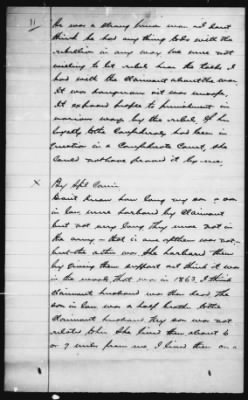 11
He was a strong Union man so I dont
think he had any thing to do with the
rebellion in any way. We were not
wishing to let rebels hear the talks I
had with the Claimant about the war
It was dangerous it was unsafe.
It exposed people to punishment in
various ways by the rebels. If his
loyalty to the Confederacy had been in
question in a Confederate Court, she
could not have proved it by me.
x
By Spl Com
Dont know how long my son & son
in law were harbored by Claimant
but not very long They were not in
the army - that is one of them was not -
but the other was. She harbored them
by giving them support and think it was
in the woods. That was in 1863. I think
Claimant husband was then dead The
son in law was a half brother to the
Claimants husband. My son was not
related to her. She lived then about 6
or 7 miles from me. I lived then on a